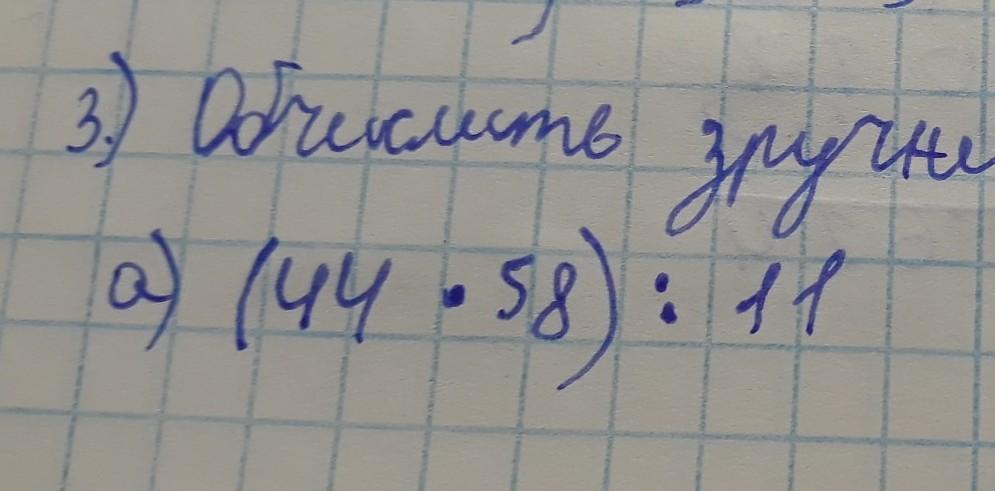 3.) Обчисліть зручни
а) (44 • 58) : 11